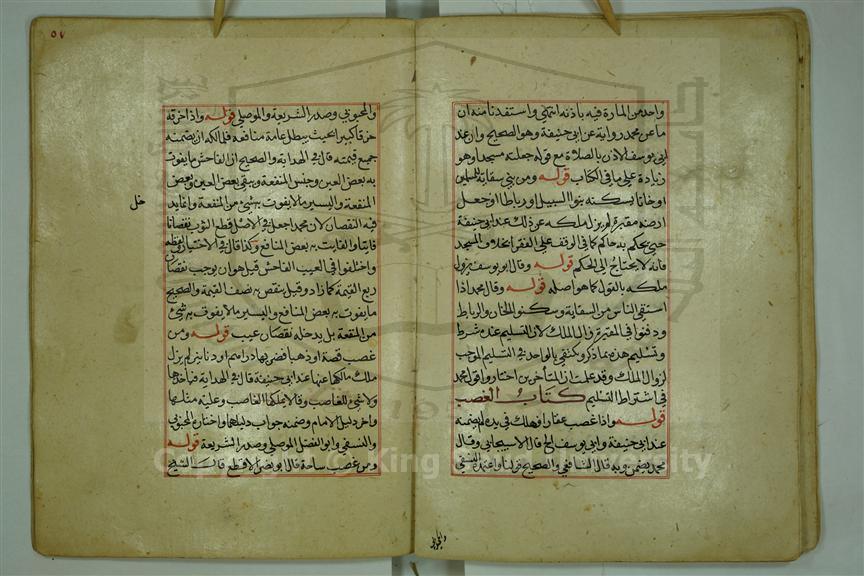 واحد من المارة فيه باذنه انتهى واستفدنا منه ان
ما عن محمد رواية عن ابي حنيفة وهو الصحيح وان عند
ابي يوسف الاذن بالصلاة مع قوله جعلته مسجدا وهو
زيادة على ما في الكتاب قوله ومن بنى سقاية للمسلمين
او خانا يسكنه بنوا السبيل او رباطا او جعل
ارضه مقبرة لم يزل ملكه عن ذلك عند ابي حنيفة
حتى يحكم به حاكم كما في الوقف على الفقرا بخلاف المسجد
فانه لا يحتاج الى الحكم قوله وقال ابو يوسف يزول
ملكه بالقول كما هو اصله قوله وقال محمد اذا
استقى الناس من السقاية وسكنوا الخان والرباط
ودفنوا في المقبرة زال الملك لان التسليم عنده شرط
وتسليم هذه بما ذكر ويكتفى بالواحد في التسليم الموجب
لزوال الملك وقد علمت ان المتأخرين اختاروا قول محمد
في اشتراط التسليم كتاب الغصب
قوله واذا غصب عقارا فهلك في يده لم يضمنه
عند ابي حنيفة وابي يوسف الخ قال الاسبيجابي وقال
محمد يضمن وبه قال الشافعي والصحيح قولنا واعتمده النسفي
والمحبوبي
٥٧
والمحبوبي وصدر الشريعة والموصلي قوله واذا خرقه
خرقا كبيرا بحيث يبطل عامة منافعه فلمالكه ان يضمنه
جميع قيمته قال في الهداية والصحيح ان الفاحش ما يفوت
به بعض العين وجنس المنفعة ويبقى بعض العين وبعض
المنفعة واليسير ما لا يفوت به شيء من المنفعة وانما يدخل
فيه النقصان لان محمدا جعل في الاصل قطع الثوب نقصانا
فاحشا والفايت به بعض المنافع وكذا قال في الاختيار
واختلفوا في العيب الفاحش قيل هو ان يوجب نقصان
ربع القيمة كما زاد وقيل ينقص به نصف القيمة والصحيح
ما يفوت به بعض المنافع واليسير ما لا يفوت به شيء
من المنفعة بل يدخله نقصان عيب قوله ومن
غصب فضة او ذهبا فضربها دراهم او دنانير لم يزل
ملك مالكها عنها عند ابي حنيفة قال في الهداية فياخذها
ولا شيء للغاصب وقالا يملكها الغاصب وعليه مثلها
واخر دليل الامام وضمنه جواب دليلهما واختاره المحبوبي
والنسفي وابو الفضل الموصلي وصدر الشريعة قوله
ومن غصب ساحة قال ابو نصر الاقطع قال الشيخ
Copyright © King Saud University